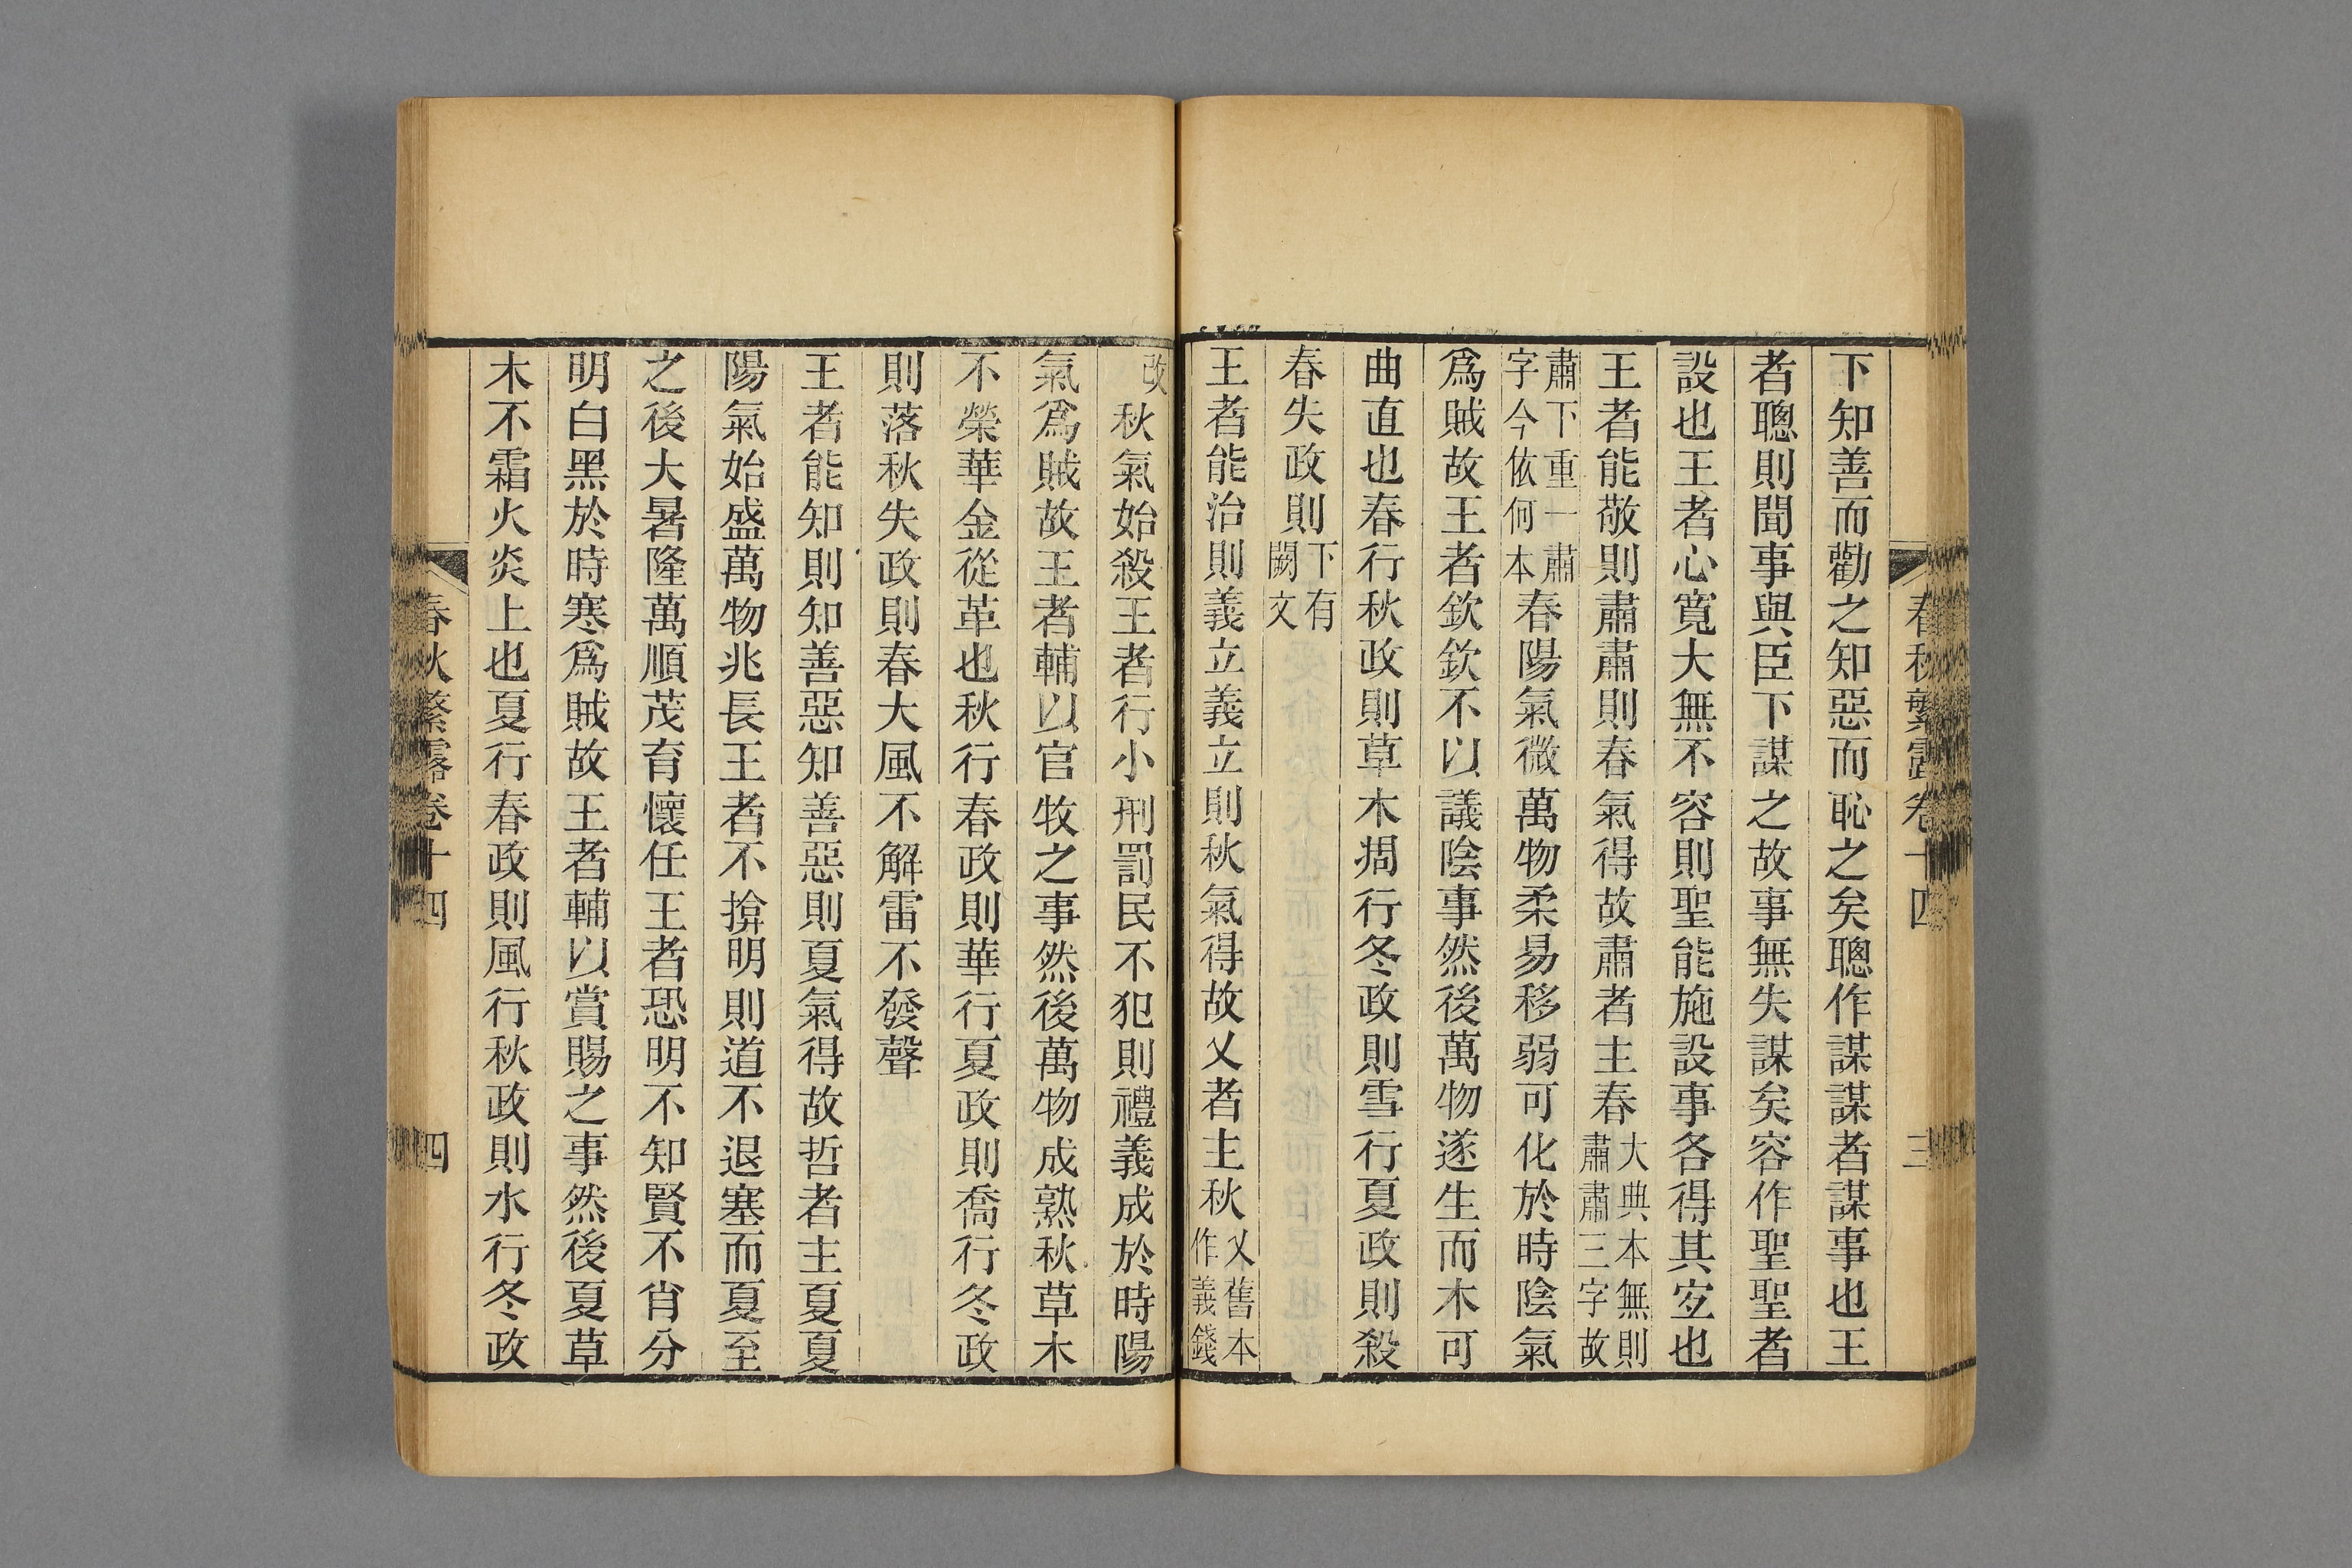 春秋繁露卷十四 三
下知善而勸之知惡而恥之矣聰作謀謀者謀事也王
者聰則聞事與臣下謀之故事無失謀矣容作聖聖者
設也王者心寬大無不容則聖能施設事各得其宐也
王者能敬則肅肅則春氣得故肅者主春大典本無則肅肅三字故
肅下重一肅字今依何本春陽氣微萬物柔易移弱可化於時陰氣
爲賊故王者欽欽不以議陰事然後萬物遂生而木可
曲直也春行秋政則草木凋行冬政則雪行夏政則殺
春失政則下有闕文
王者能治則義立義立則秋氣得故乂者主秋乂舊本作義錢
改秋氣始殺王者行小刑罰民不犯則禮義成於時陽
氣爲賊故王者輔以官牧之事然後萬物成熟秋草木
不榮華金從革也秋行春政則華行夏政則喬行冬政
則落秋失政則春大風不解雷不發聲
王者能知則知善惡知善惡則夏氣得故哲者主夏夏
陽氣始盛萬物兆長王者不揜明則道不退塞而夏至
之後大暑隆萬順茂育懷任王者恐明不知賢不肖分
明白黑於時寒爲賊故王者輔以賞賜之事然後夏草
木不霜火炎上也夏行春政則風行秋政則水行冬政
春秋繁露卷十四 四